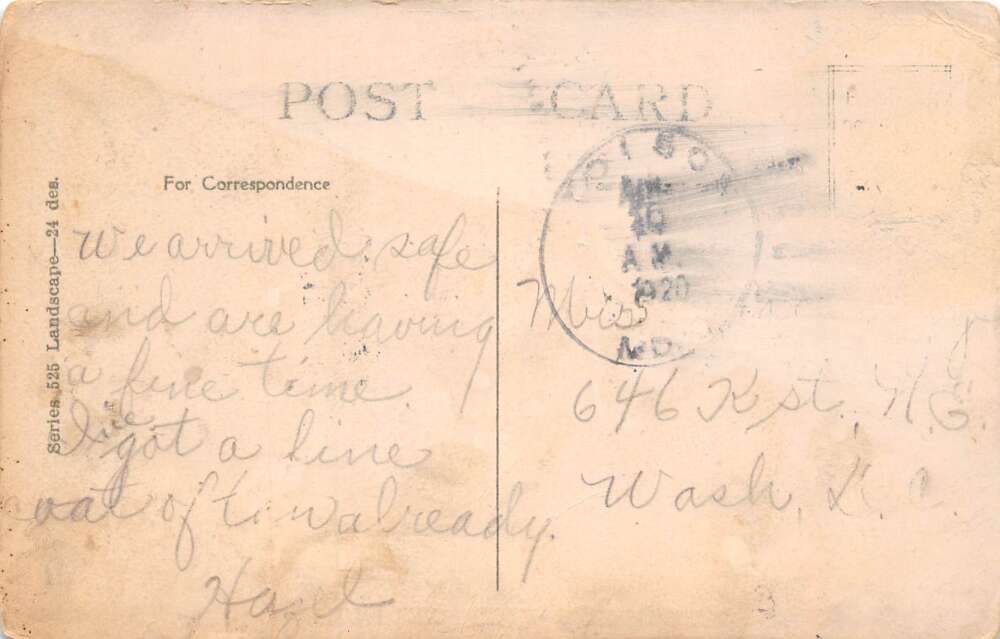 POST CARD
For Correspondence
Series 525 Landscape—24 des.
We arrived safe
and are having
a fine time.
I've
got a line
out of town already.
Hazel
A.M.
1920
Miss
646 K st. N.E.
Wash, D.C.